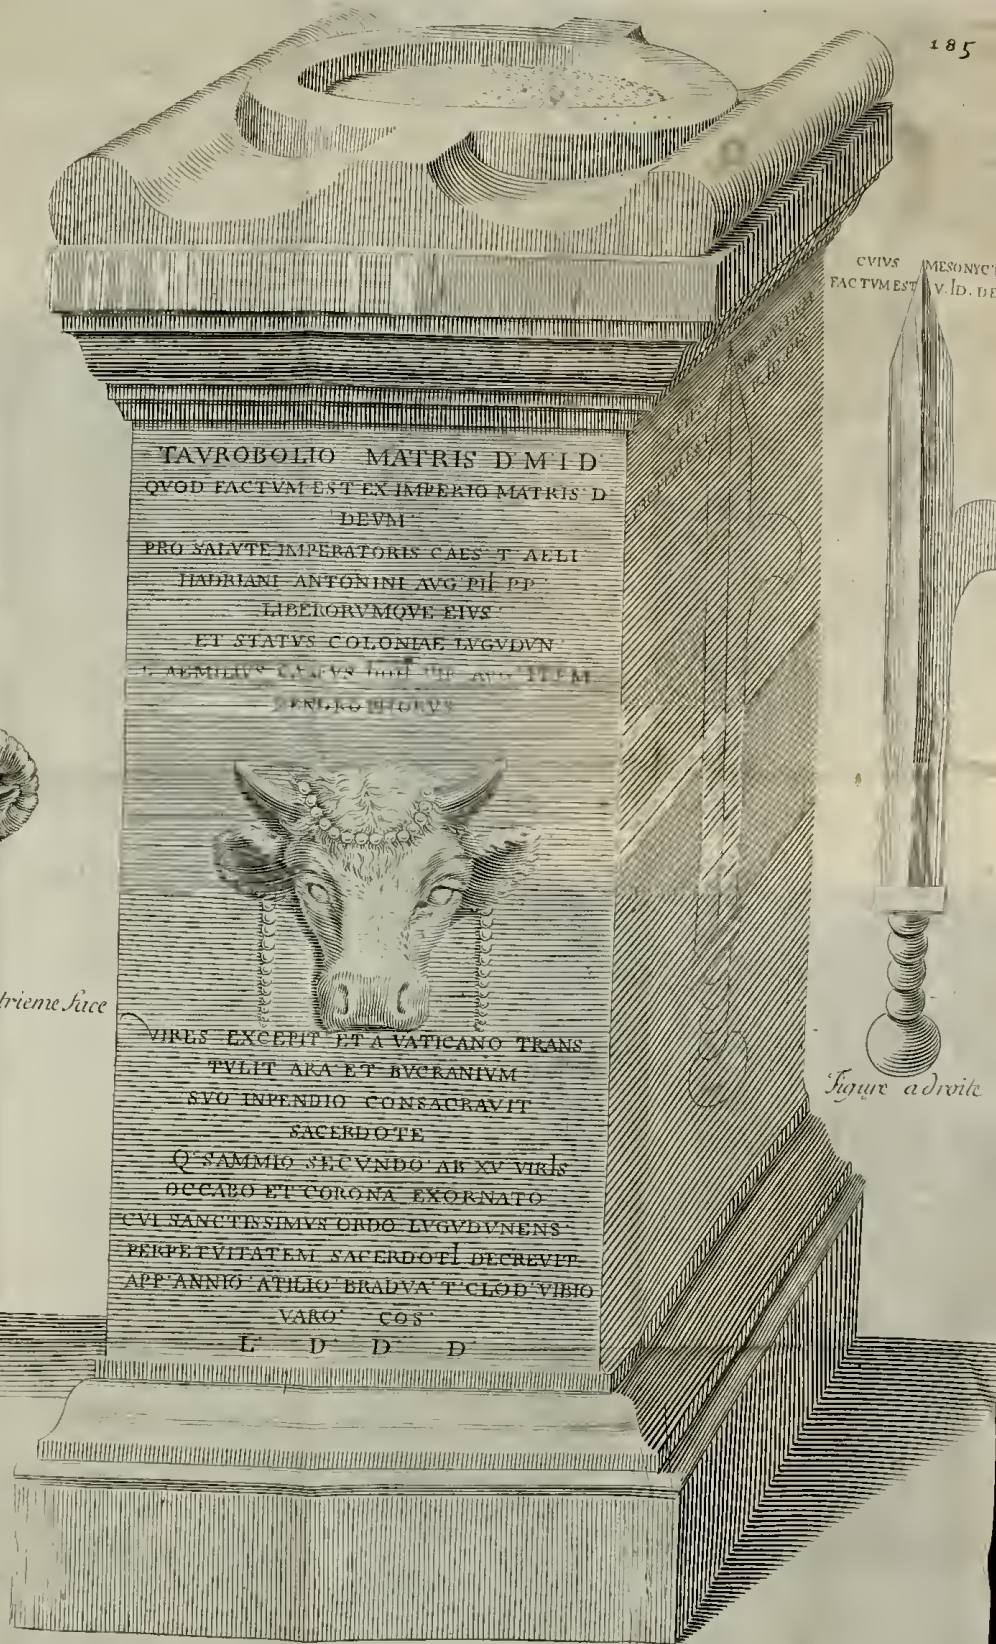 185
CVIVS MESONYCT
FACTVM EST V. ID. DE
TAVROBOLIO MATRIS D M I D
QVOD FACTVM EST EX IMPERIO MATRIS D
DEVM
PRO SALVTE IMPERATORIS CAES T AELI
HADRIANI ANTONINI AVG PII PP
LIBERORVMQVE EIVS
ET STATVS COLONIAE LVGVDVN
L AEMILIVS CARPVS IIIIII VIR AVG ITEM
DENDROPHORVS
VIRES EXCEPIT ET A VATICANO TRANS
TVLIT ARA ET BVCRANIVM
SVO INPENDIO CONSACRAVIT
SACERDOTE
Q SAMMIO SECVNDO AB XV VIRIS
OCCABO ET CORONA EXORNATO
CVI SANCTISSIMVS ORDO LVGVDVNENS
PERPETVITATEM SACERDOTI DECREVIT
APP ANNIO ATILIO BRADVA T CLOD VIBIO
VARO COS
L D D D
trieme face
Figure a droite